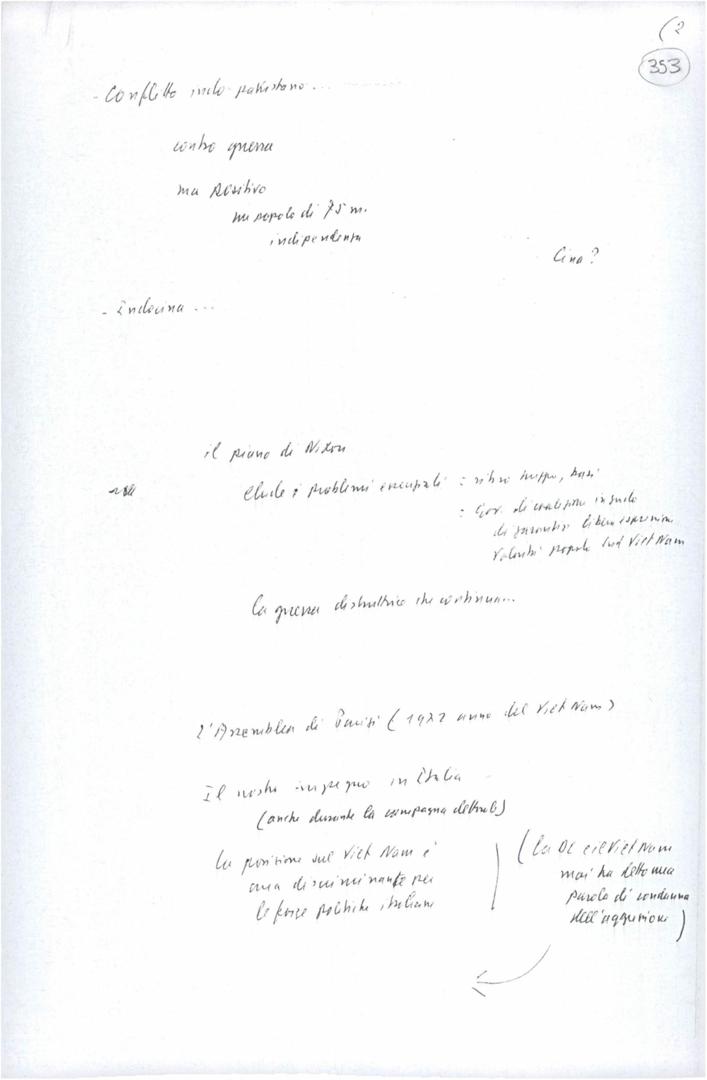 (2
353
- Conflitto indo-pakistano...
contro guerra
ma positivo
un popolo di 75 m.
indipendenza
Cina?
- Indocina ...
il piano di Nixon
elude i problemi essenziali : ritiro truppe, basi
: Gov. di coalizione in grado
di garantire libera espressione
volontà popolo Sud Viet Nam
la guerra distruttrice che continua...
L'Assemblea di Parigi (1972 anno del Viet Nam)
Il nostro impegno in Italia
(anche durante la campagna elettorale)
la posizione sul Viet Nam è
una discriminante per
le forze politiche italiane
(la DC e il Viet Nam
mai ha detto una
parola di condanna
dell'aggressione)